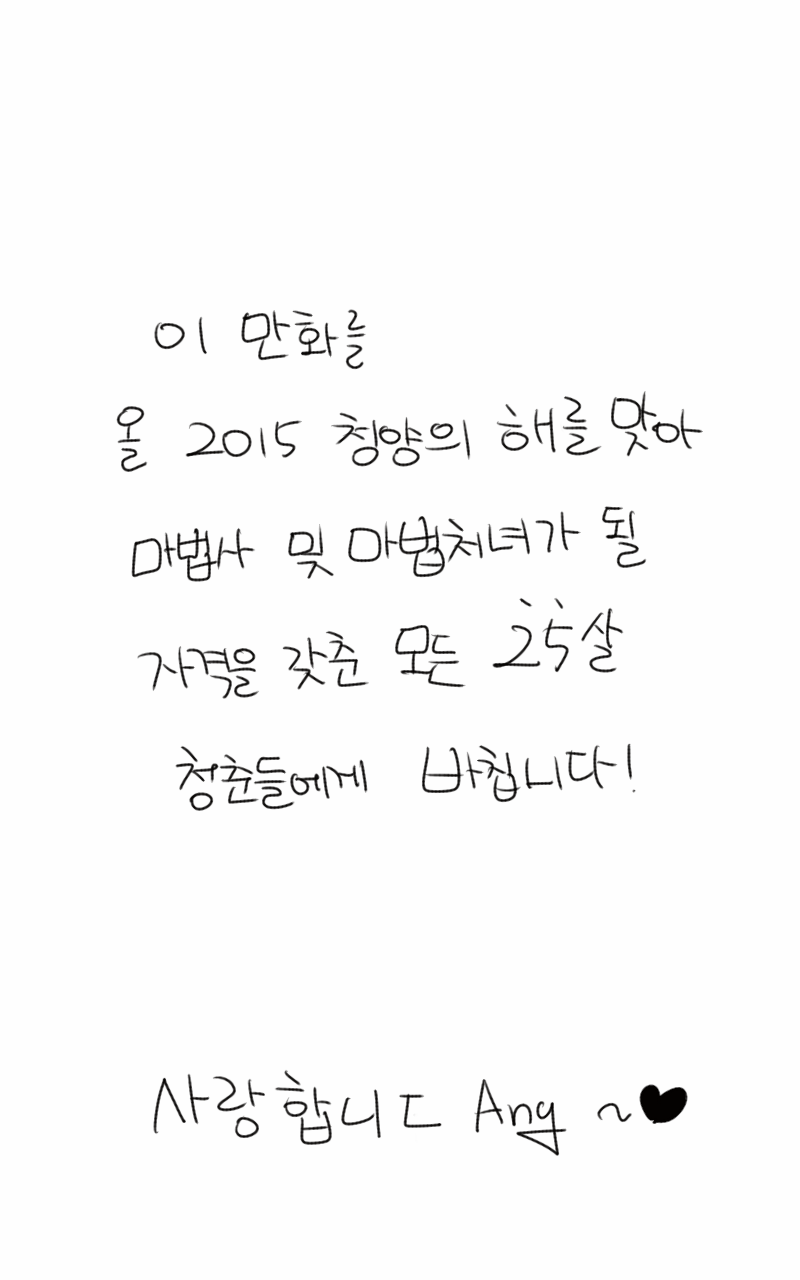 이 만화를
올 2015 청양의 해를 맞아
마법사 및 마법처녀가 될
자격을 갖춘 모든 25살
청춘들에게 바칩니다!
사랑합니ㄷ Ang ~♥